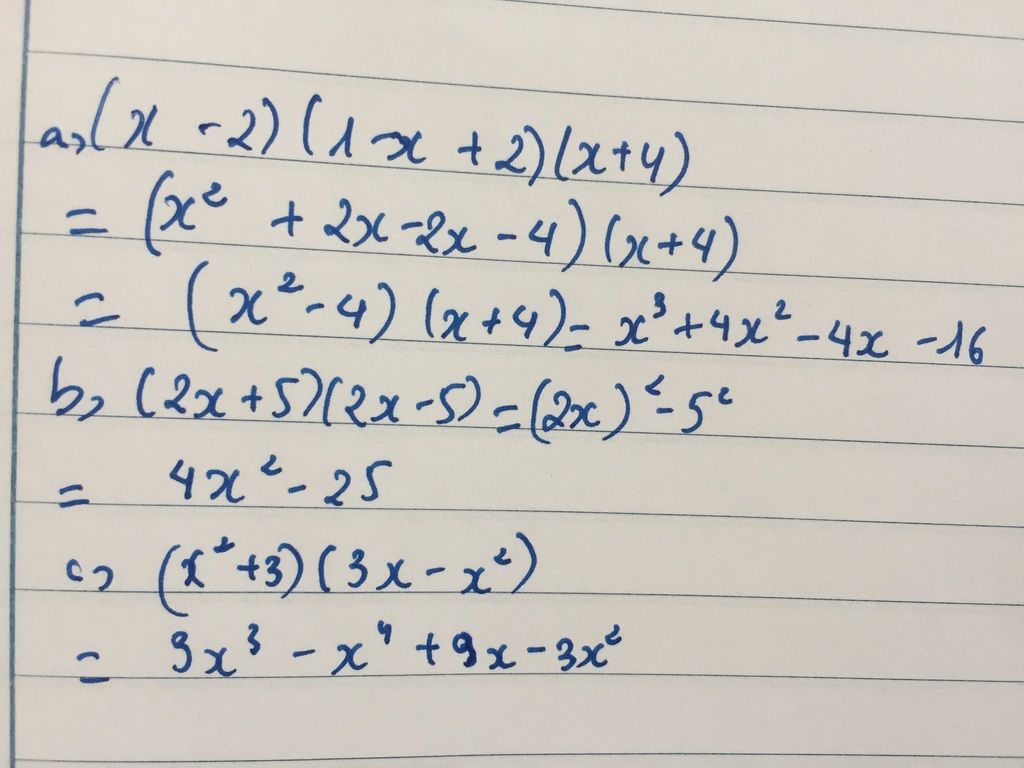 a, (x - 2) (1 - x + 2) (x + 4)
= (x² + 2x - 2x - 4) (x + 4)
= (x² - 4) (x + 4) = x³ + 4x² - 4x - 16
b, (2x + 5) (2x - 5) = (2x)² - 5²
= 4x² - 25
c, (x² + 3) (3x - x²)
= 3x³ - x⁴ + 9x - 3x²